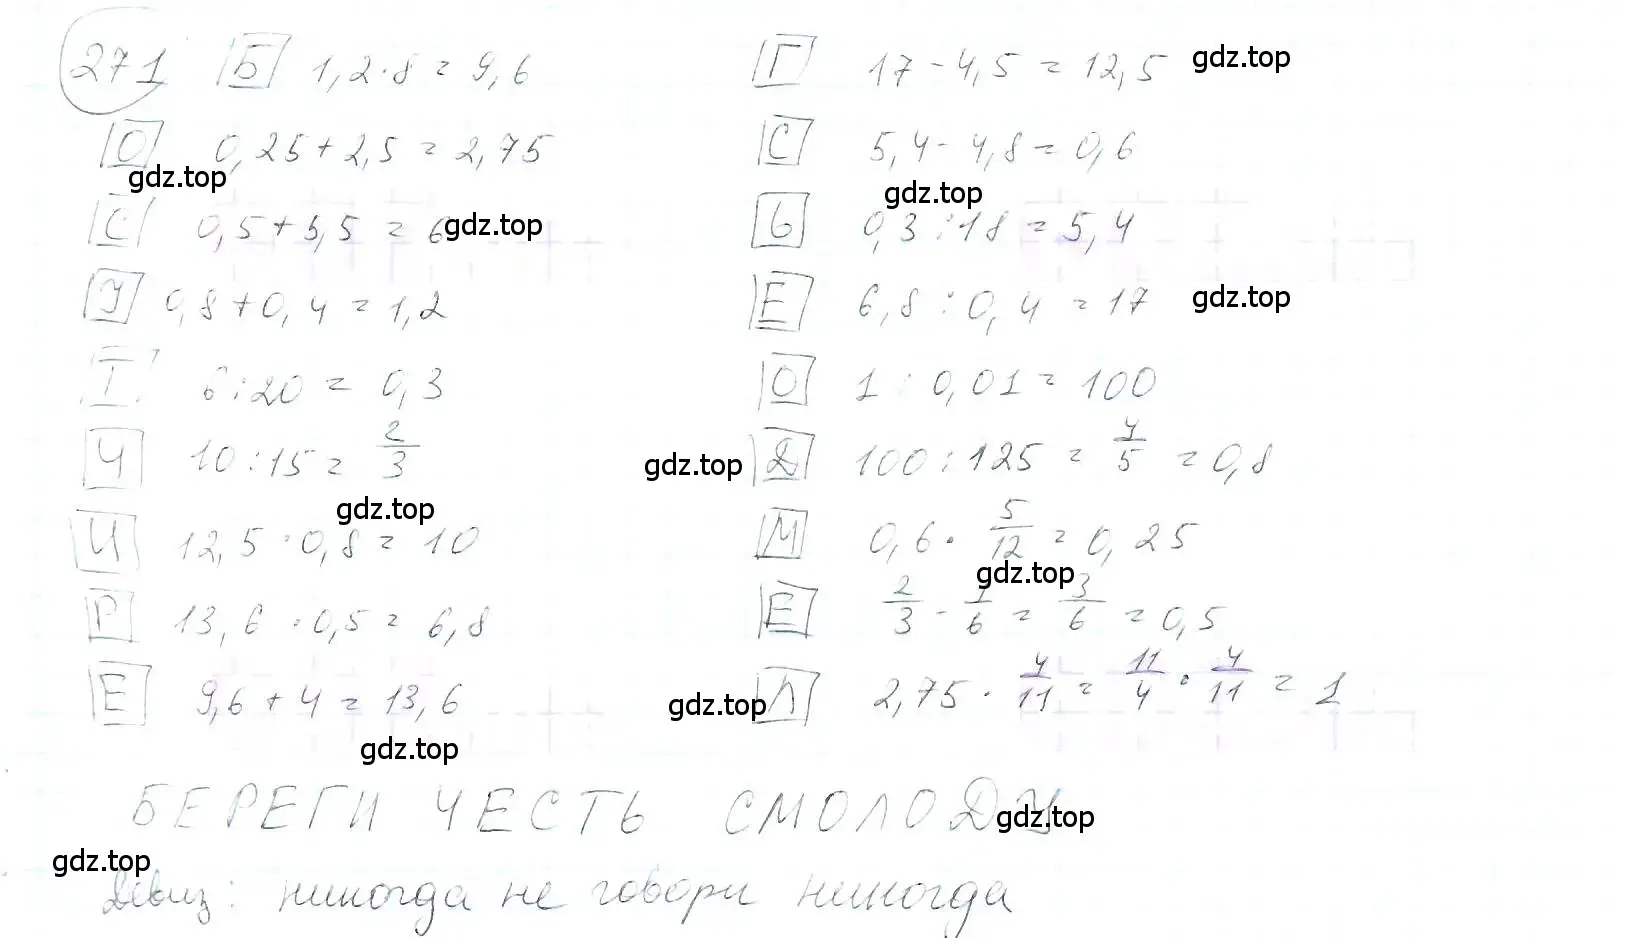 271 Б 1,2·8=9,6
Г 17-4,5=12,5 gdz.top
О 0,25+2,5=2,75
С 5,4-4,8=0,6
gdz.top
gdz.top
С 0,5+5,5=6 gdz.top
Ь 0,3:18=5,4
У 0,8+0,4=1,2
Е 6,8:0,4=17 gdz.top
Т 6:20=0,3
О 1:0,01=100
Ч 10:15=2/3
gdz.top Д 100:125=4/5=0,8
gdz.top
И 12,5·0,8=10
М 0,6·5/12=0,25
gdz.top
Р 13,6·0,5=6,8
Е 2/3-1/6=3/6=0,5
Е 9,6+4=13,6
gdz.top Л 2,75·4/11=11/4·4/11=1
gdz.top
БЕРЕГИ ЧЕСТЬ СМОЛОДУ
gdz.top
gdz.top
Девиз: никогда не говори никогда